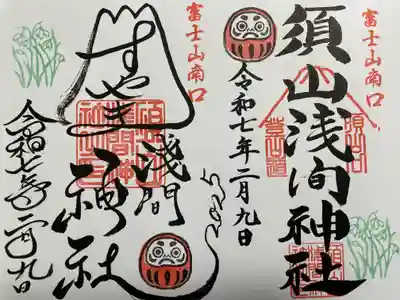 富士山南口
須山浅间神社
須山口
登山道
令和七年二月九日
富士山南口
すやま
浅間
神社
2025
令和七年二月九日